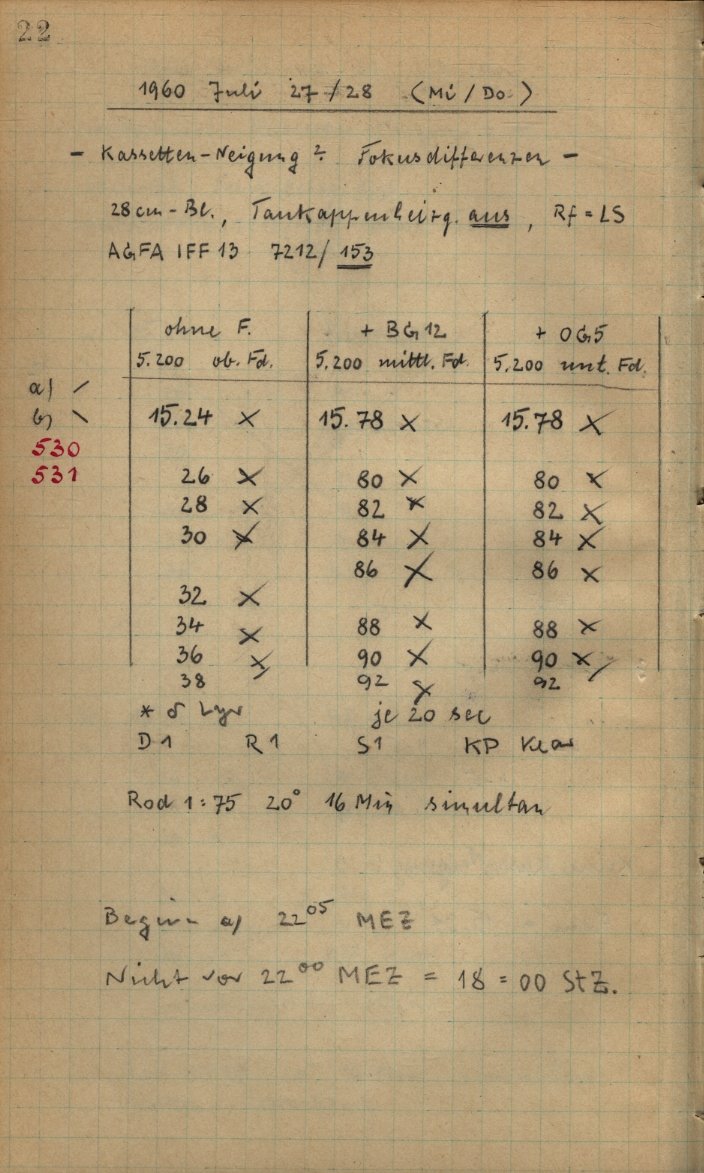 22
1960 Juli 27/28 (Mi/Do)
- Kassetten-Neigung? Fokusdifferenzen -
28cm-Bl., Taukappenheizg. aus, Rf = LS
AGFA IFF 13 7212/153
ohne F. + BG12 + OG5
5.200 ob. Fd. 5.200 mittl. Fd. 5.200 unt. Fd.
a) /
b) \ 15.24 × 15.78 × 15.78 ×
530
531 26 × 80 × 80 ×
28 × 82 × 82 ×
30 × 84 × 84 ×
86 × 86 ×
32 ×
34 × 88 × 88 ×
36 × 90 × 90 ×
38 / 92 × 92 /
* δ Lyr je 20 sec
D1 R1 S1 KP klar
Rod 1:75 20° 16 Min simultan
Beginn a) 22⁰⁵ MEZ
Nicht vor 22⁰⁰ MEZ = 18=00 StZ.